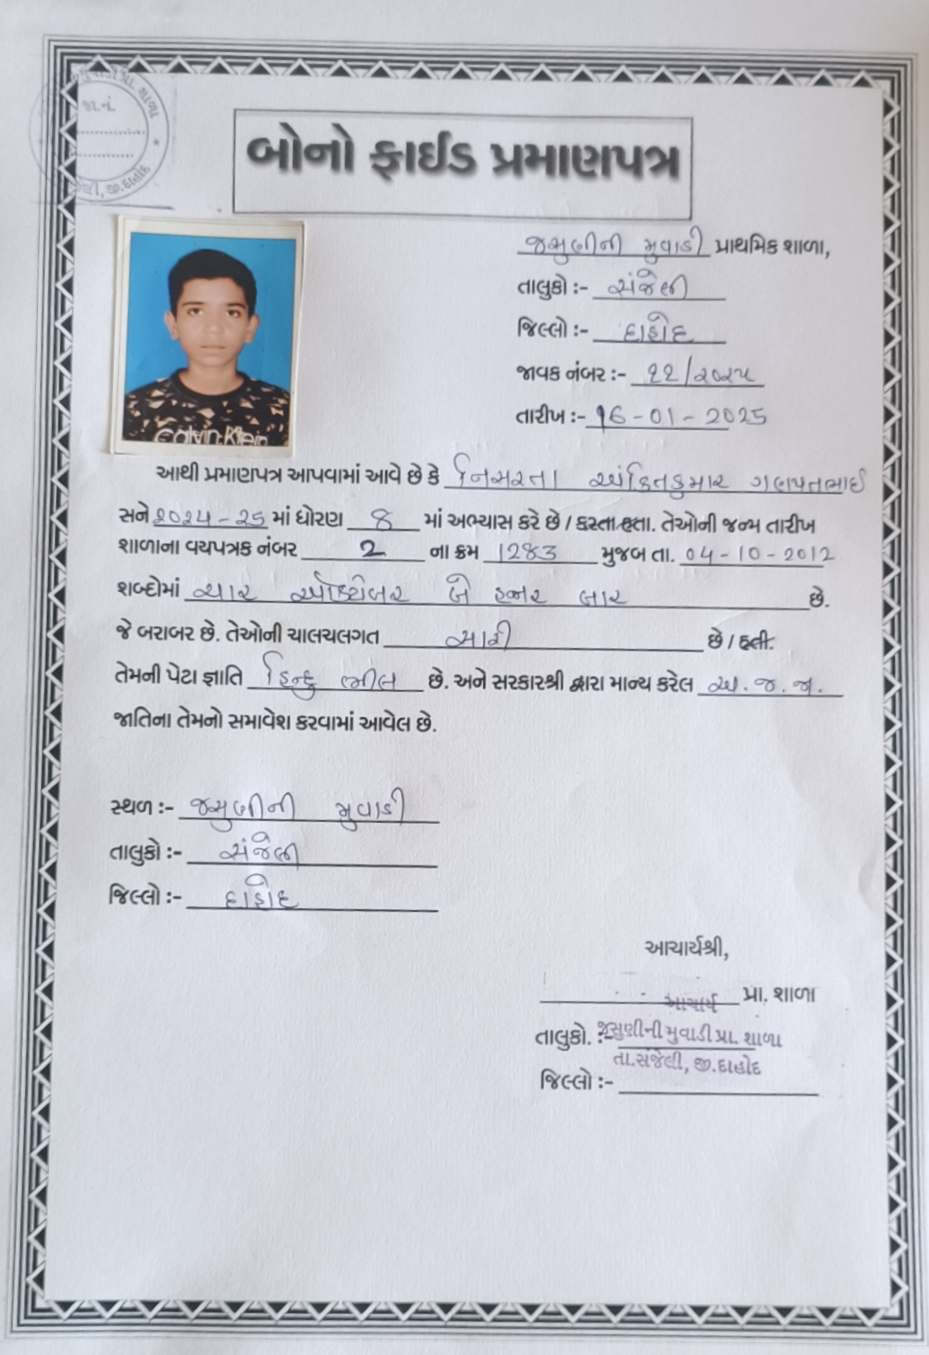 પ્રા. શાળા
જા.નં.
જી.દાહોદ
બોનો ફાઈડ પ્રમાણપત્ર
જસુણીની મુવાડી પ્રાથમિક શાળા,
તાલુકો :- સંજેલી
જિલ્લો :- દાહોદ
જાવક નંબર :- ૨૨/૨૦૨૫
તારીખ :- 16-01-2025
Calvin Klein
આથી પ્રમાણપત્ર આપવામાં આવે છે કે નિસરતા અંકિતકુમાર ગણપતભાઈ
સને ૨૦૨૪-૨૫ માં ધોરણ 8 માં અભ્યાસ કરે છે / કરતા હતા. તેઓની જન્મ તારીખ
શાળાના વયપત્રક નંબર 2 ના ક્રમ 1283 મુજબ તા. 04-10-2012
શબ્દોમાં ચાર ઓક્ટોબર બે હજાર બાર છે.
જે બરાબર છે. તેઓની ચાલચલગત સારી છે / હતી.
તેમની પેટા જ્ઞાતિ હિન્દુ ભીલ છે. અને સરકારશ્રી દ્વારા માન્ય કરેલ અ.જ.જા.
જાતિના તેમનો સમાવેશ કરવામાં આવેલ છે.
સ્થળ :- જસુણીની મુવાડી
તાલુકો :- સંજેલી
જિલ્લો :- દાહોદ
આચાર્યશ્રી,
આચાર્ય પ્રા. શાળા
તાલુકો. :- જસુણીની મુવાડી પ્રા. શાળા
તા.સંજેલી, જી.દાહોદ
જિલ્લો :-